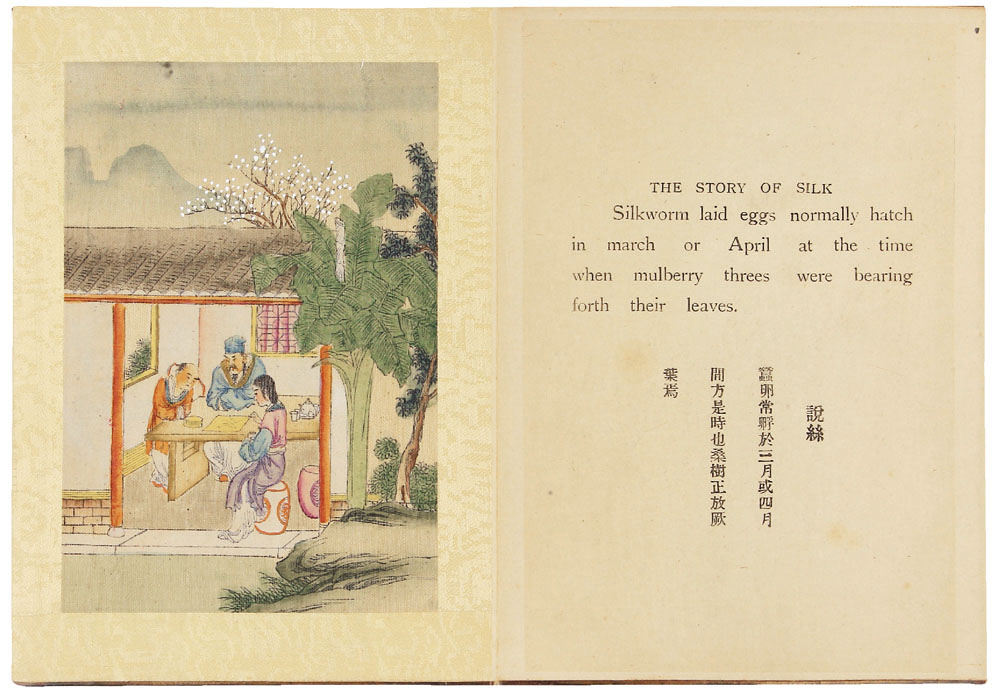 THE STORY OF SILK
Silkworm laid eggs normally hatch
in march or April at the time
when mulberry threes were bearing
forth their leaves.
說絲
蠶卵常孵於三月或四月
間方是時也桑樹正放厥
葉焉